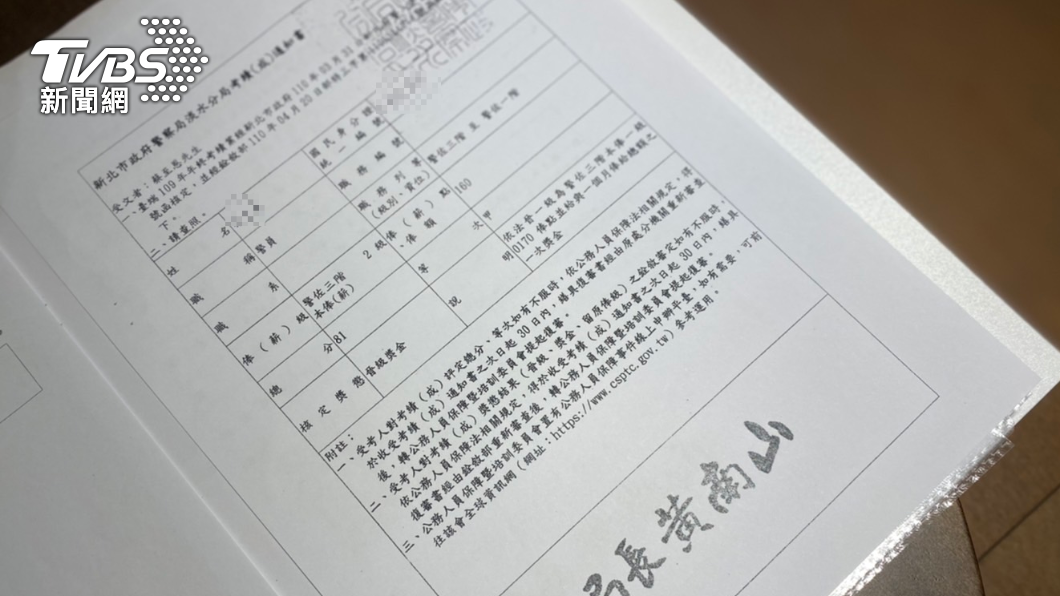 TVBS
新聞網
新北市政府警察局淡水分局考績(成)通知書
受文者：蘇
先生
一、臺端109年年終考績業經新北市政府110年03月31
號函核定，並經銓敘部110年04月23日部特三字第
下。
二、請查照。
姓名
國民身分證
統一編號
職稱 警員
職務編號
職系
職務列等
(級別、資位) 警佐三階 至 警佐一階
俸(薪)級 警佐三階 2級
本俸(薪)
俸(薪)點 160
、俸額
總分 81
等次 甲
核定獎懲 晉級獎金
說明 依法晉一級為警佐三階本俸一級
0170 俸點並給與一個月俸給總額之
一次獎金
附註：
一、受考人對考績(成)評定總分、等次如有不服時，依公務人員保障法相關規定，得
於收受考績(成)通知書之次日起30日內，繕具復審書經由原處分機關重新審查
後，轉公務人員保障暨培訓委員會提起復審。
二、受考人對考績(成)獎懲結果(晉級、獎金、留原俸級)之銓敘審定如有不服時，
依公務人員保障法相關規定，得於收受考績(成)通知書之次日起30日內，繕具
復審書經由銓敘部重新審查後，轉公務人員保障暨培訓委員會提起復審。
三、公務人員保障暨培訓委員會置有公務人員保障事件線上申辦平臺，如有需要，可前
往該會全球資訊網(網址：https://www.csptc.gov.tw)參考運用。
局長黃
山